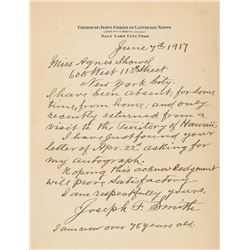 CHURCH OF JESUS CHRIST OF LATTER-DAY SAINTS
JOSEPH F. SMITH
SALT LAKE CITY, UTAH
June 7th 1917
Miss Agnes Showel
606 West 113th Street
New York City.
I have been absent, for some
time, from home; and only
recently returned from a
visit to the Territory of Hawaii,
I have just found your
letter of Apr. 22d asking for
my autograph.
Hoping this acknowledgment
will prove Satisfactory
I am respectfully yours,
Joseph F. Smith
I am now over 78 years old.